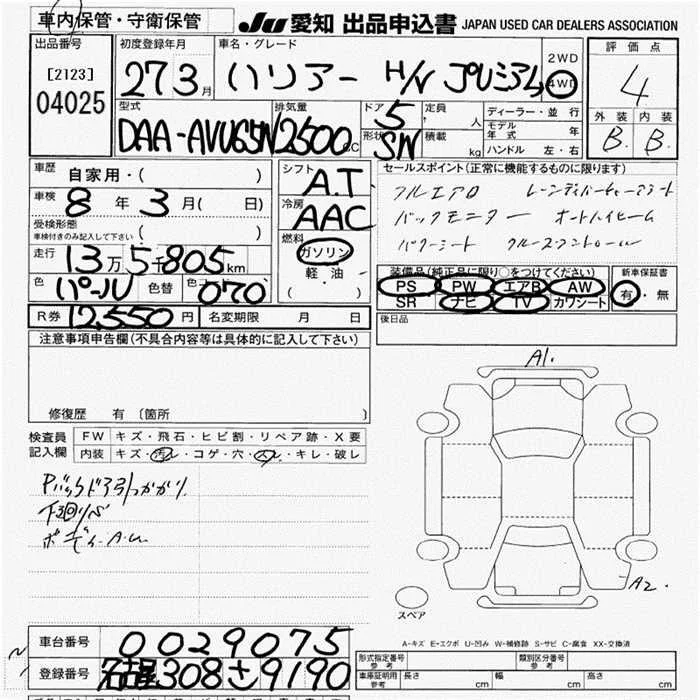 車内保管・守衛保管
JU 愛知 出品申込書 JAPAN USED CAR DEALERS ASSOCIATION
出品番号 [2123] 04025
初度登録年月 27 3月
車名・グレード ハリアー H/V プレミアム
2WD 4WD
評価点 4
外装 内装
B. B.
型式 DAA-AVU65N
排気量 2500cc
ドア 5
形状 SW
定員 人
積載 kg
ディーラー・並行
モデル年式 年
ハンドル 左・右
車歴 自家用・( )
車検 8年 3月( 日)
受検形態 ( )
車検付きのみ記入して下さい
走行 13万5千805km
色 パール 色替 色コ 070
シフト A.T
冷房 AAC
燃料 ガソリン
軽・油
( )
R券 12,550円 名変期限 月 日
セールスポイント(正常に機能するものに限ります)
フルエアロ
バックモニター オートハイビーム
パワーシート クルーズコントロール
装備品(純正品に限り○をつけてください) 新車保証書
PS PW エアB AW 有・無
SR ナビ TV カワシート
後日品
注意事項申告欄(不具合内容等は具体的に記入して下さい)
修復歴 有 〔箇所 〕
検査員記入欄
FW キズ・飛石・ヒビ割・リペア跡・X要
内装 キズ・汚レ・コゲ・穴・スレ・キレ・破レ
Pバックドア引っかかり
下回りサビ
ボディ-A.U
A1.
A2.
スペア
A-キズ E-エクボ U-凹み W-補修跡 S-サビ C-腐食 XX-交換済
車台番号 0029075
登録番号 名古屋308さ9190
形式指定番号 参考
類別区分番号 参考
車庫証明用 参考 長さ cm 幅 cm 高さ cm